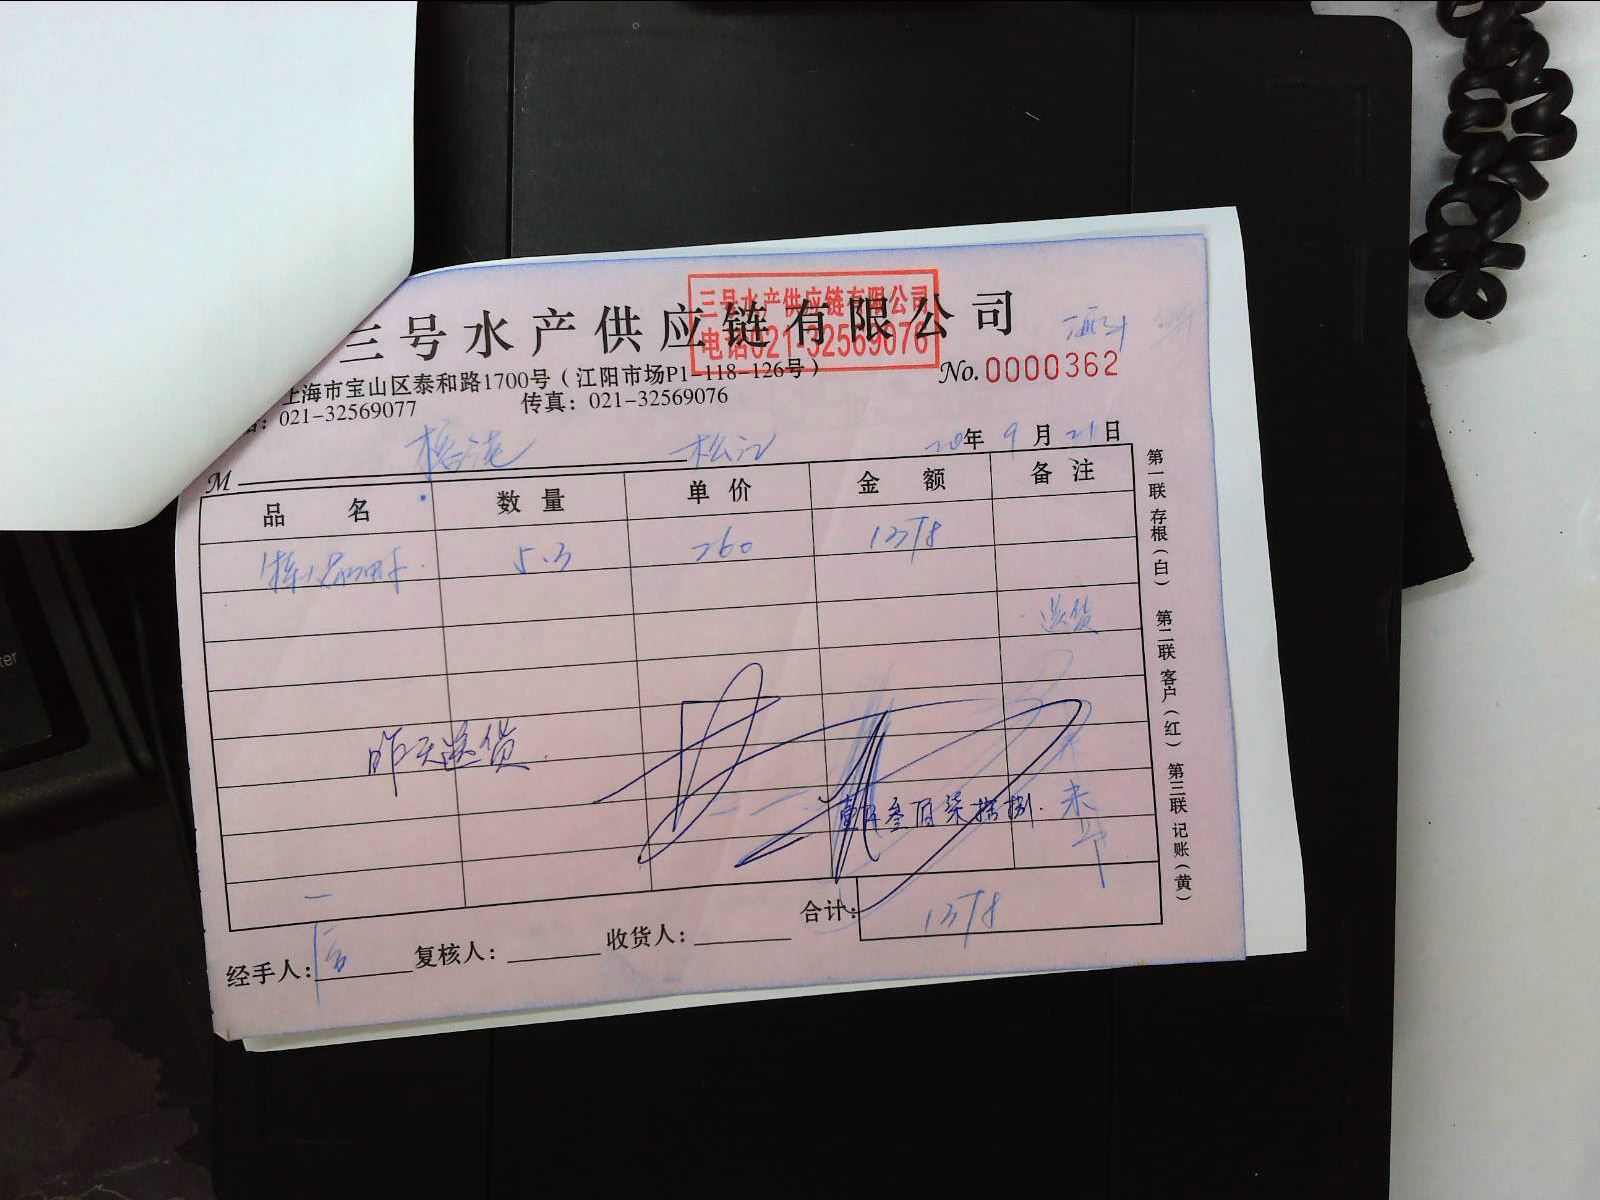 三号水产供应链有限公司
三号水产供应链有限公司
电话021-32569076
上海市宝山区泰和路1700号（江阳市场P1-118-126号）
No.0000362
：021-32569077 传真：021-32569076
M 松江 20年9月21日
品名 数量 单价 金额 备注
5.3 260 1378
送货
昨天送货
壹仟叁佰柒拾捌
未
合计：1378
经手人： 复核人： 收货人：
第一联存根（白） 第二联客户（红） 第三联记账（黄）